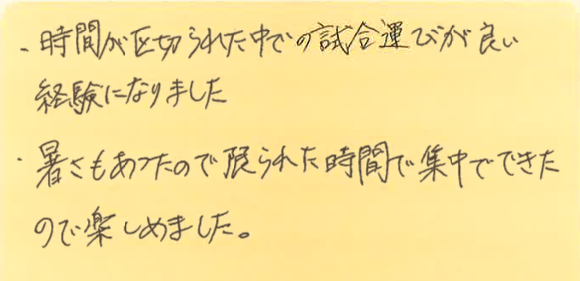 ・時間が区切られた中での試合運びが良い
経験になりました
・暑さもあったので限られた時間で集中でできた
ので楽しめました。